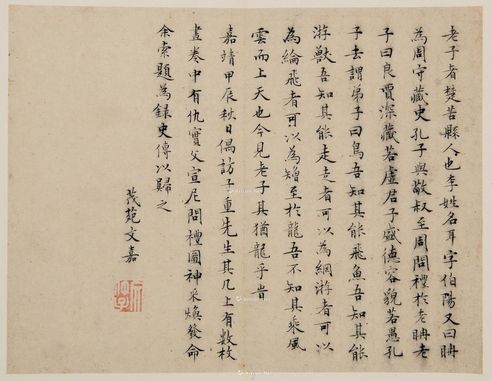 老子者楚苦縣人也李姓名耳字伯陽又曰聃
為周守藏史孔子與敬叔至周問禮於老聃老
子曰良賈深藏若虛君子盛德容貌若愚孔
子去謂弟子曰鳥吾知其能飛魚吾知其能
游獸吾知其能走走者可以為網游者可以
為綸飛者可以為矰至於龍吾不知其乘風
雲而上天也今見老子其猶龍乎昔
嘉靖甲辰秋日偶訪子重先生其几上有數枝
畫卷中有仇實父宣尼問禮圖神采煥發命
余索題為錄史傳以歸之
茂苑文嘉